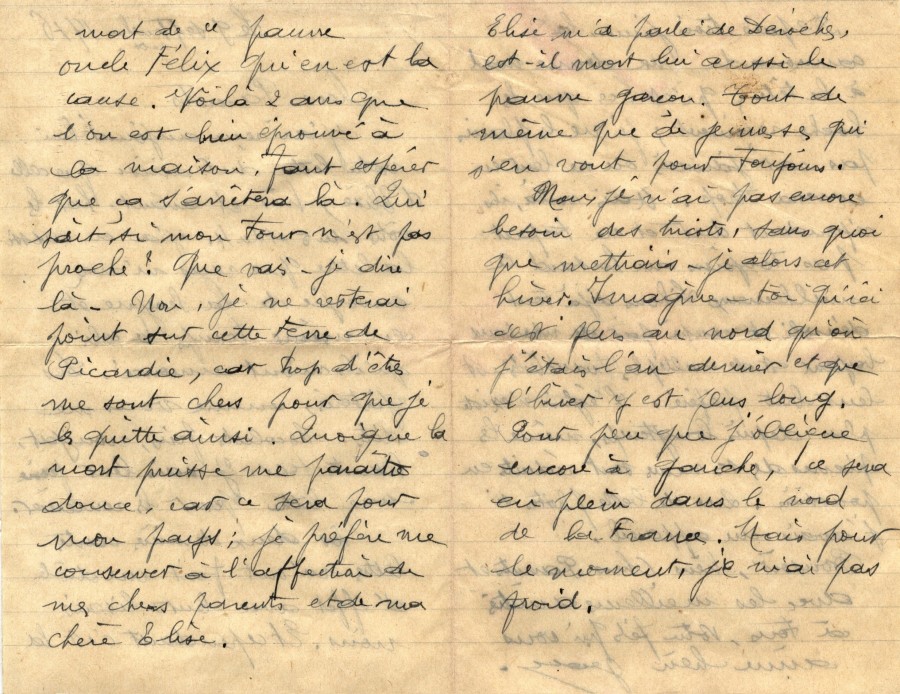 mort de ce pauvre
oncle Félix qui en est la
cause. Voilà 2 ans que
l'on est bien éprouvé à
la maison. Faut espérer
que ça s'arrêtera là. Qui
sait, si mon tour n'est pas
proche! Que vais-je dire
là - Non, je ne resterai
point sur cette terre de
Picardie, car trop d'êtres
me sont chers pour que je
les quitte ainsi. Quoique la
mort puisse me paraître
douce, car ce sera pour
mon pays; je préfère me
conserver à l'affection de
mes chers parents et de ma
chère Elise.
Elise m'a parlé de
est-il mort lui aussi le
pauvre garçon. Tout de
même que de jeunesses qui
s'en vont pour toujours.
Non, je n'ai pas encore
besoin des tricots, sans quoi
que mettrais-je alors cet
hiver. Imagine-toi qu'ici
c'est plus au nord qu'où
j'étais l'an dernier et que
l'hiver y est plus long.
Pour peu que j'oblique
encore à gauche, ce sera
en plein dans le nord
de la France. Mais pour
le moment, je n'ai pas
froid.